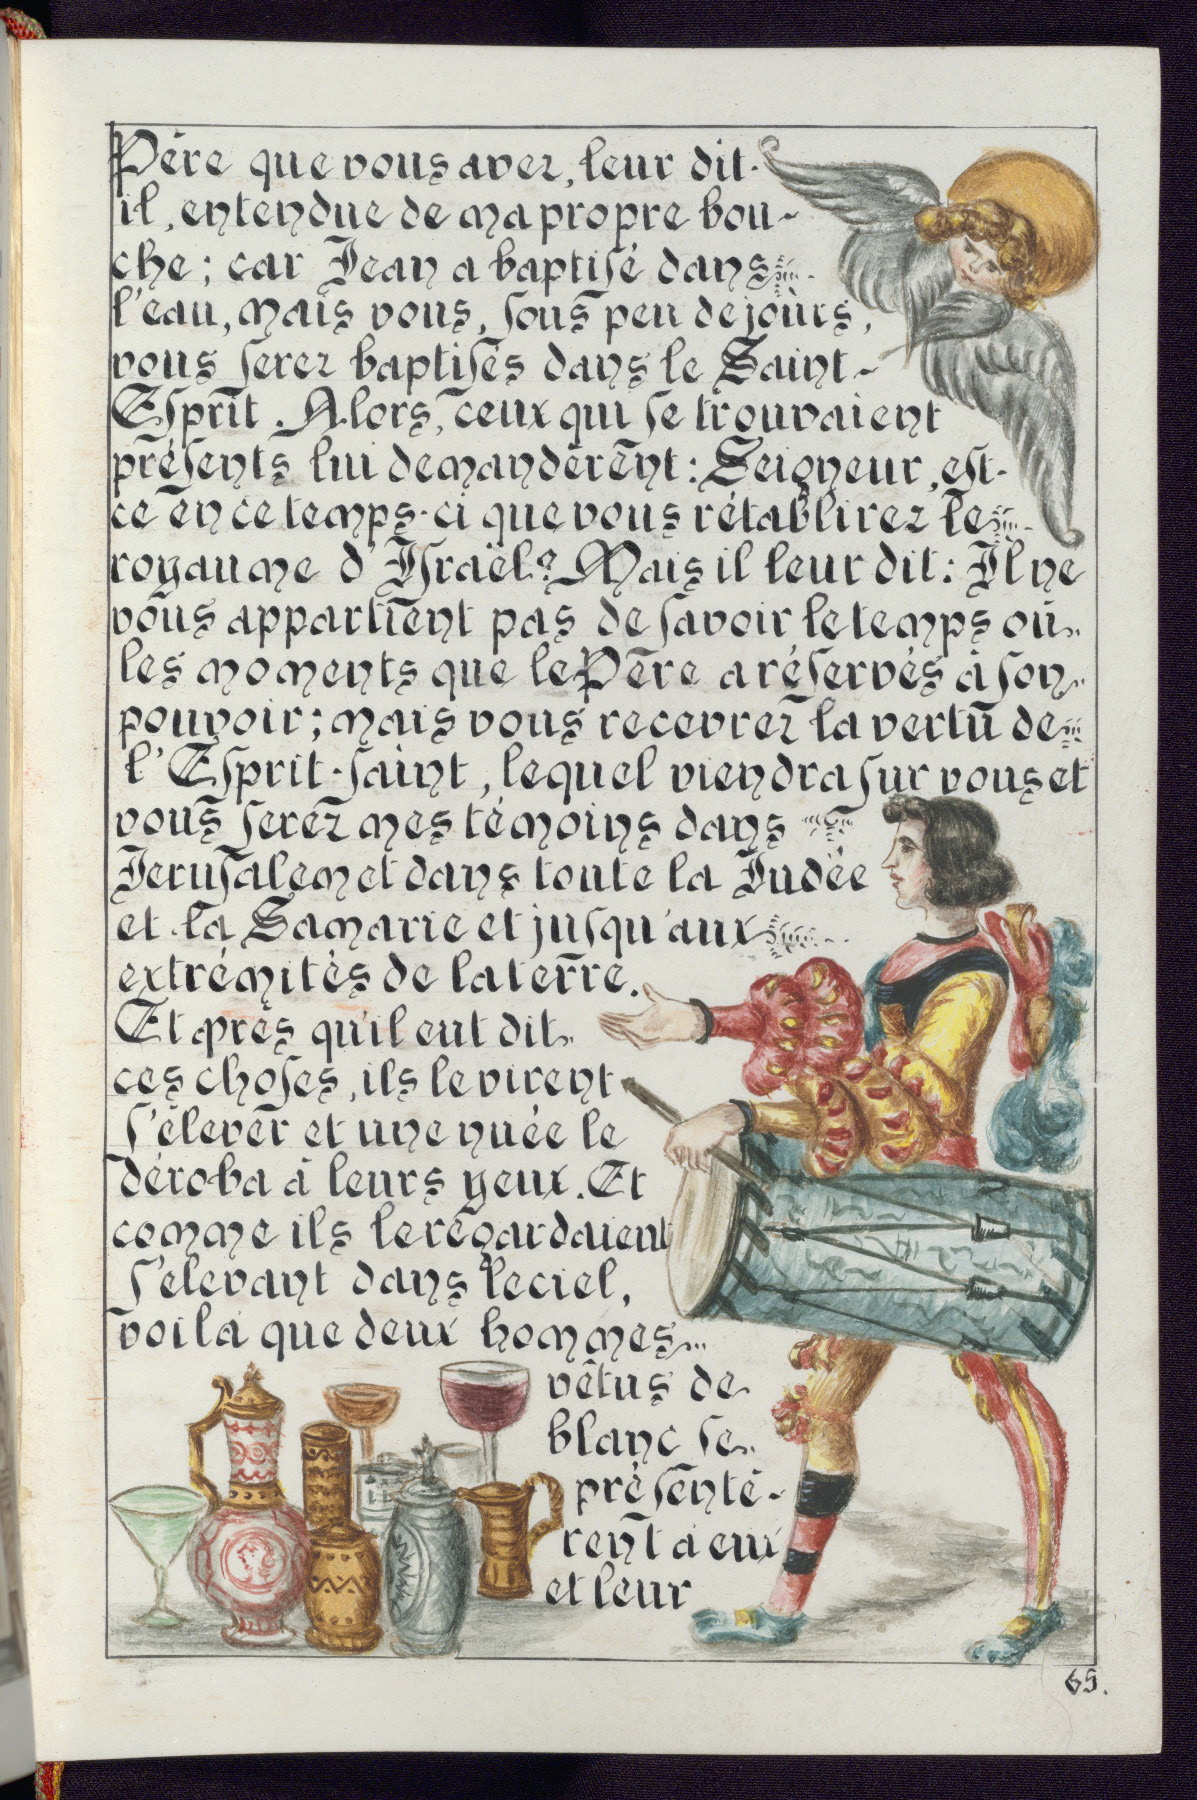 Père que vous avez, leur dit-
il, entendue de ma propre bou-
che; car Jean a baptisé dans
l'eau, mais vous, sous peu de jours,
vous serez baptisés dans le Saint-
Esprit. Alors, ceux qui se trouvaient
présents lui demandèrent: Seigneur, est-
ce en ce temps-ci que vous rétablirez le
royaume d'Israël? Mais il leur dit: Il ne
vous appartient pas de savoir le temps où
les moments que le Père a réservés à son
pouvoir; mais vous recevrez la vertu de
l'Esprit-saint, lequel viendra sur vous et
vous serez mes témoins dans
Jerusalem et dans toute la Judée
et la Samarie et jusqu'aux
extrémités de la terre.
Et près qu'il eut dit
ces choses, ils le virent
s'élever et une nuée le
déroba à leurs yeux. Et
comme ils le regardaient
s'elevant dans le ciel,
voilà que deux hommes
vêtus de
blanc se
présenté-
rent à eux
et leur
65.